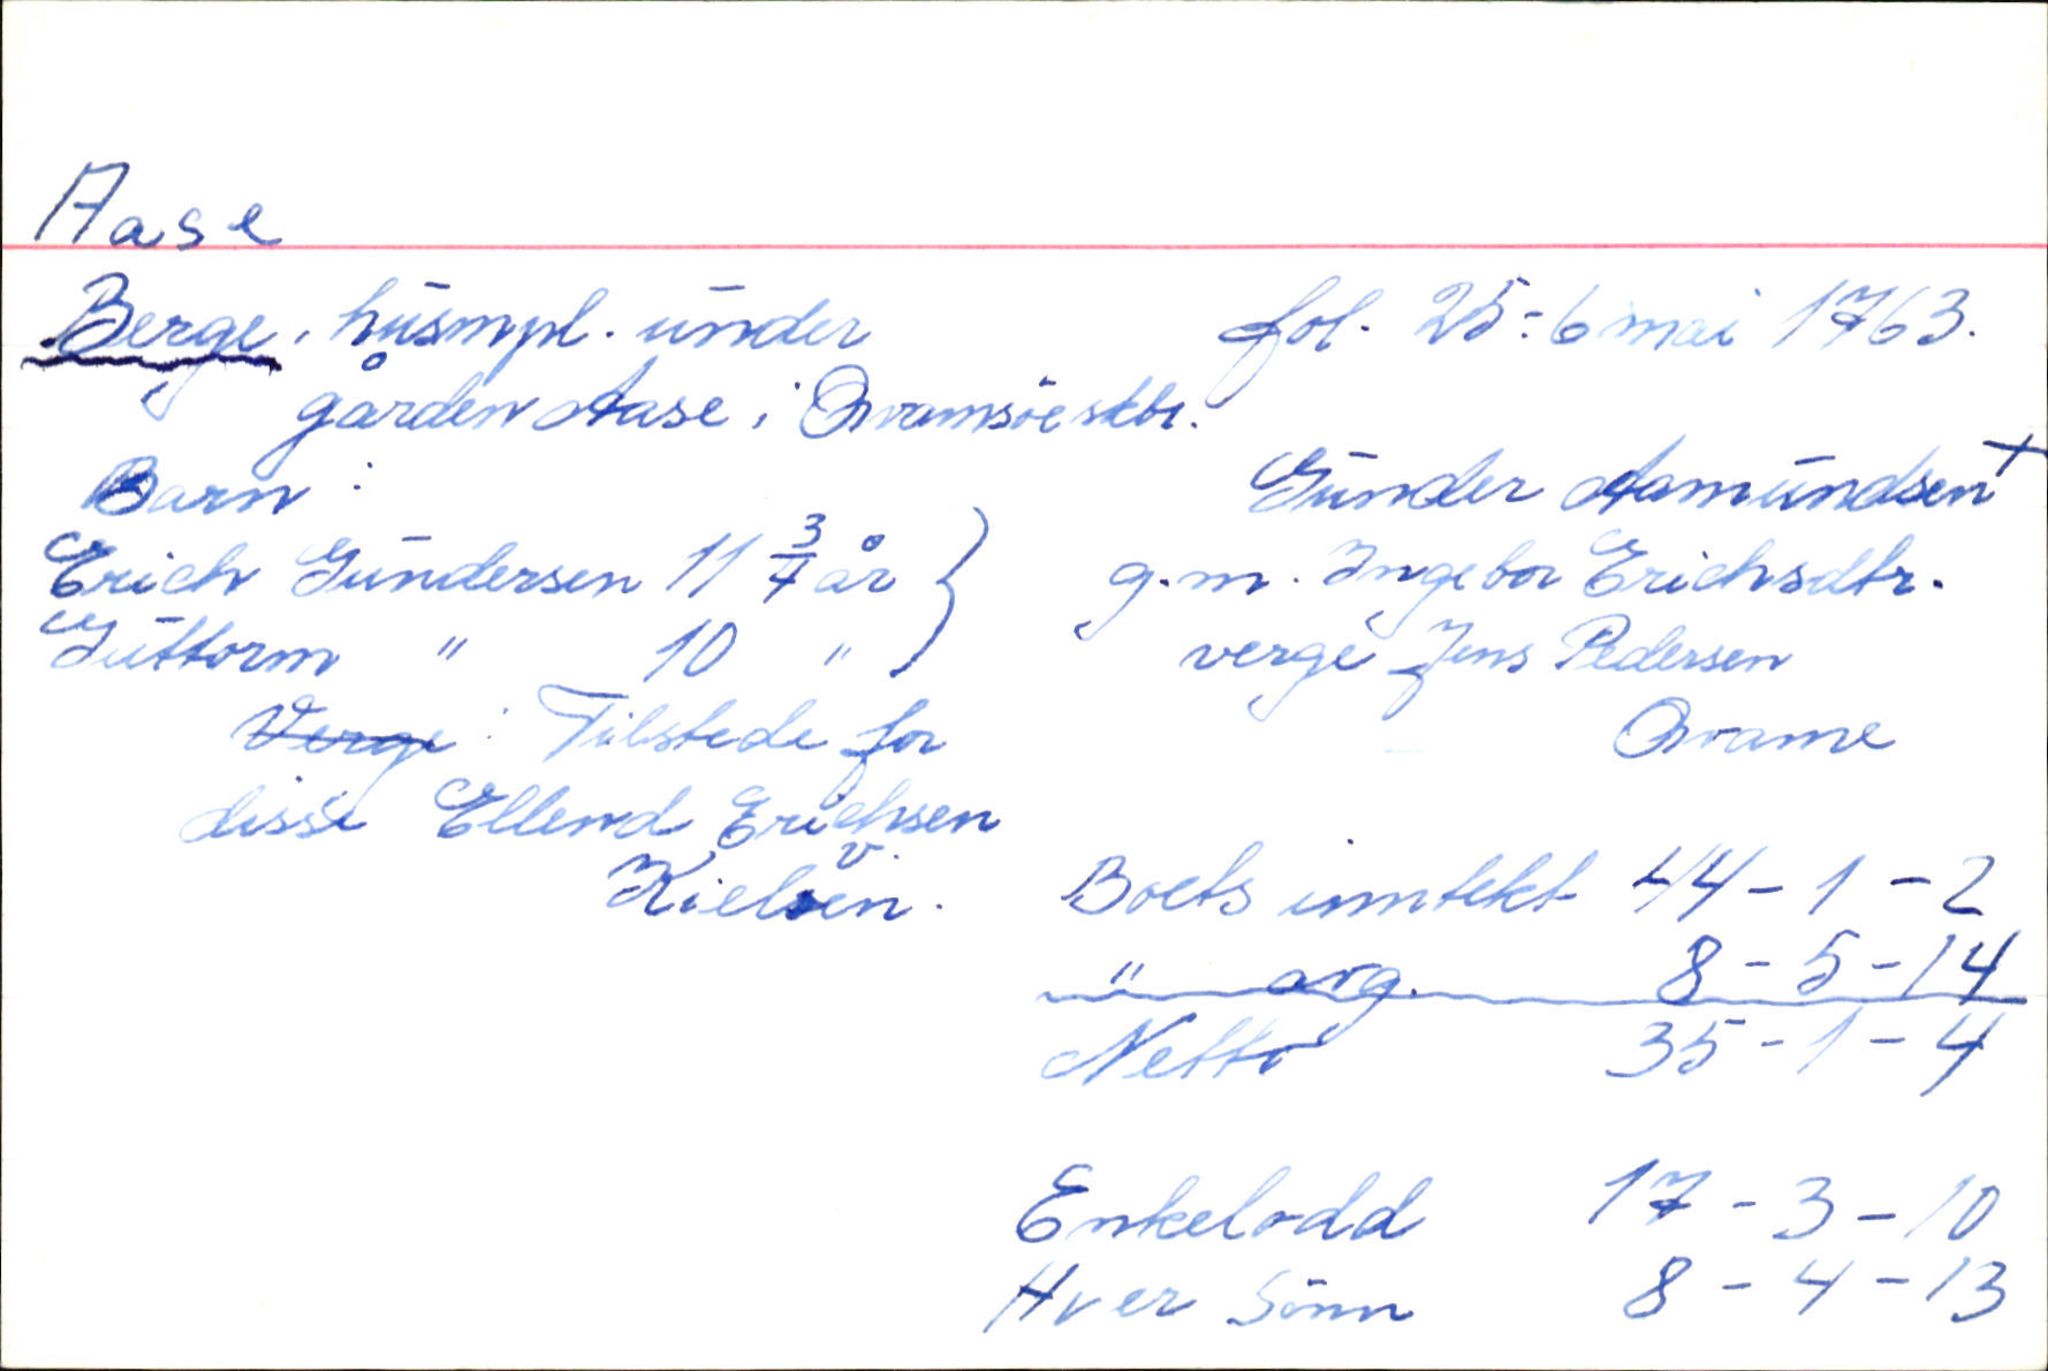 Aase
Berge, husmpl. under
gården Aase i Qvamsöe skbr.
fol. 25 : 6 mai 1763.
Barn :
Erich Gundersen 11 3/4 år }
Guttorm " 10 "
Verge : Tilstede for
disse Ellend Erichsen
v.
Kielsen.
Gunder Aamundsen +
g.m. Ingebor Erichsdtr.
verge Jens Pedersen
Qvame
Boets inntekt 44 - 1 - 2
" avg. 8 - 5 - 14
Netto 35 - 1 - 4
Enkelodd 17 - 3 - 10
Hver Sönn 8 - 4 - 13